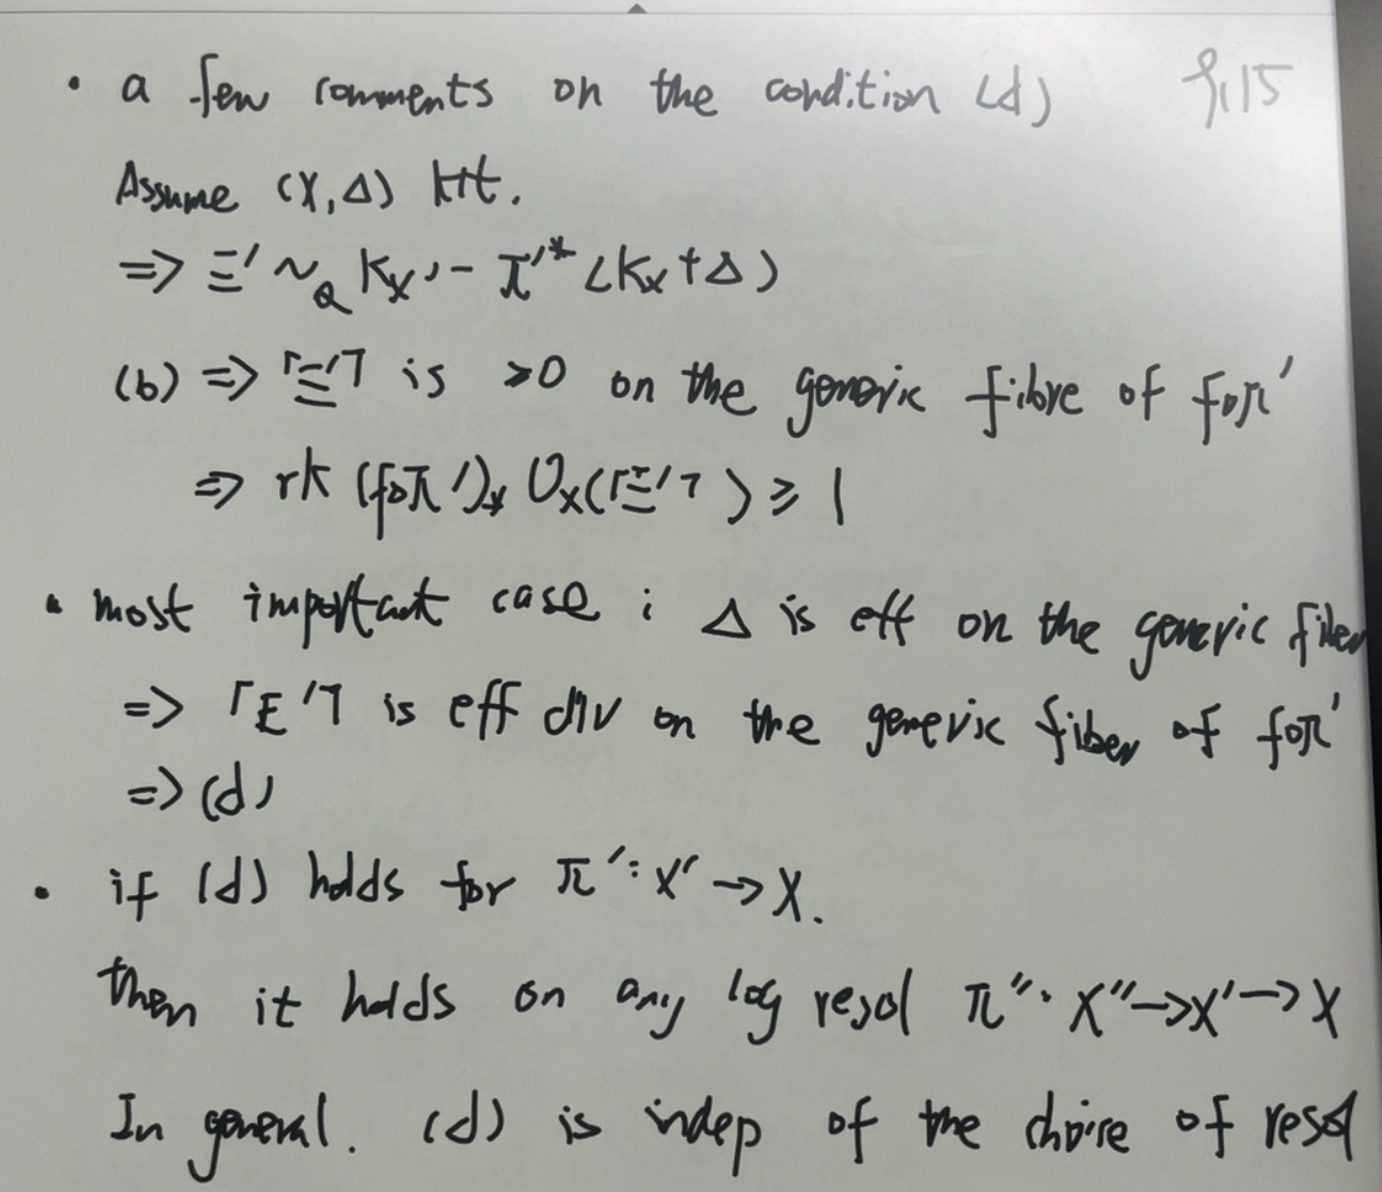 • a few comments on the condition (d) 8.15
Assume (X,Δ) klt.
=> Ξ' ~Q Kx' - π'* (Kx+Δ)
(b) => ⌈Ξ'⌉ is ≥0 on the generic fibre of f∘π'
=> rk (f∘π')* Ox(⌈Ξ'⌉) ≥ 1
• most important case : Δ is eff on the generic fiber
=> ⌈E'⌉ is eff div on the generic fiber of f∘π'
=> (d)
• if (d) holds for π': X' → X.
then it holds on any log resol π'': X''→X'→X
In general. (d) is indep of the choice of resol